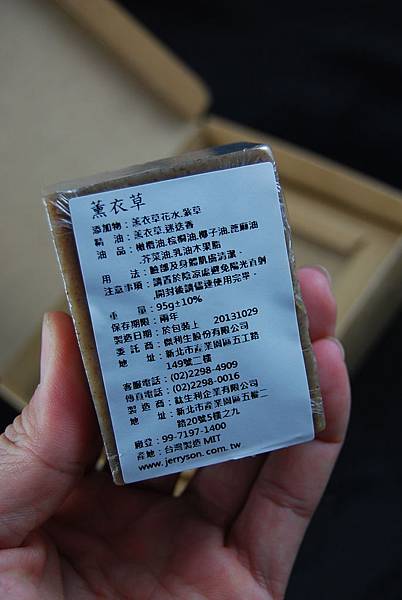 薰衣草
添加物：薰衣草花水.紫草
精　油：薰衣草.迷迭香
油　品：橄欖油.棕櫚油.椰子油.蓖麻油
芥菜油.乳油木果脂
用　法：臉部及身體肌膚清潔．
注意事項：請置於陰涼處避免陽光直射
開封後請儘速使用完畢．
重　量：95g±10%
保存期限：兩年
製造日期：於包裝上　20131029
委 託 商：傑利生股份有限公司
地　址：新北市產業園區五工路
149號二樓
客服電話：(02)2298-4909
傳真電話：(02)2298-0016
製 造 商：鈦生利企業有限公司
地　址：新北市產業園區五權二
路20號5樓之九
廠登：99-7197-1400
產地：台灣製造 MIT
www.jerryson.com.tw